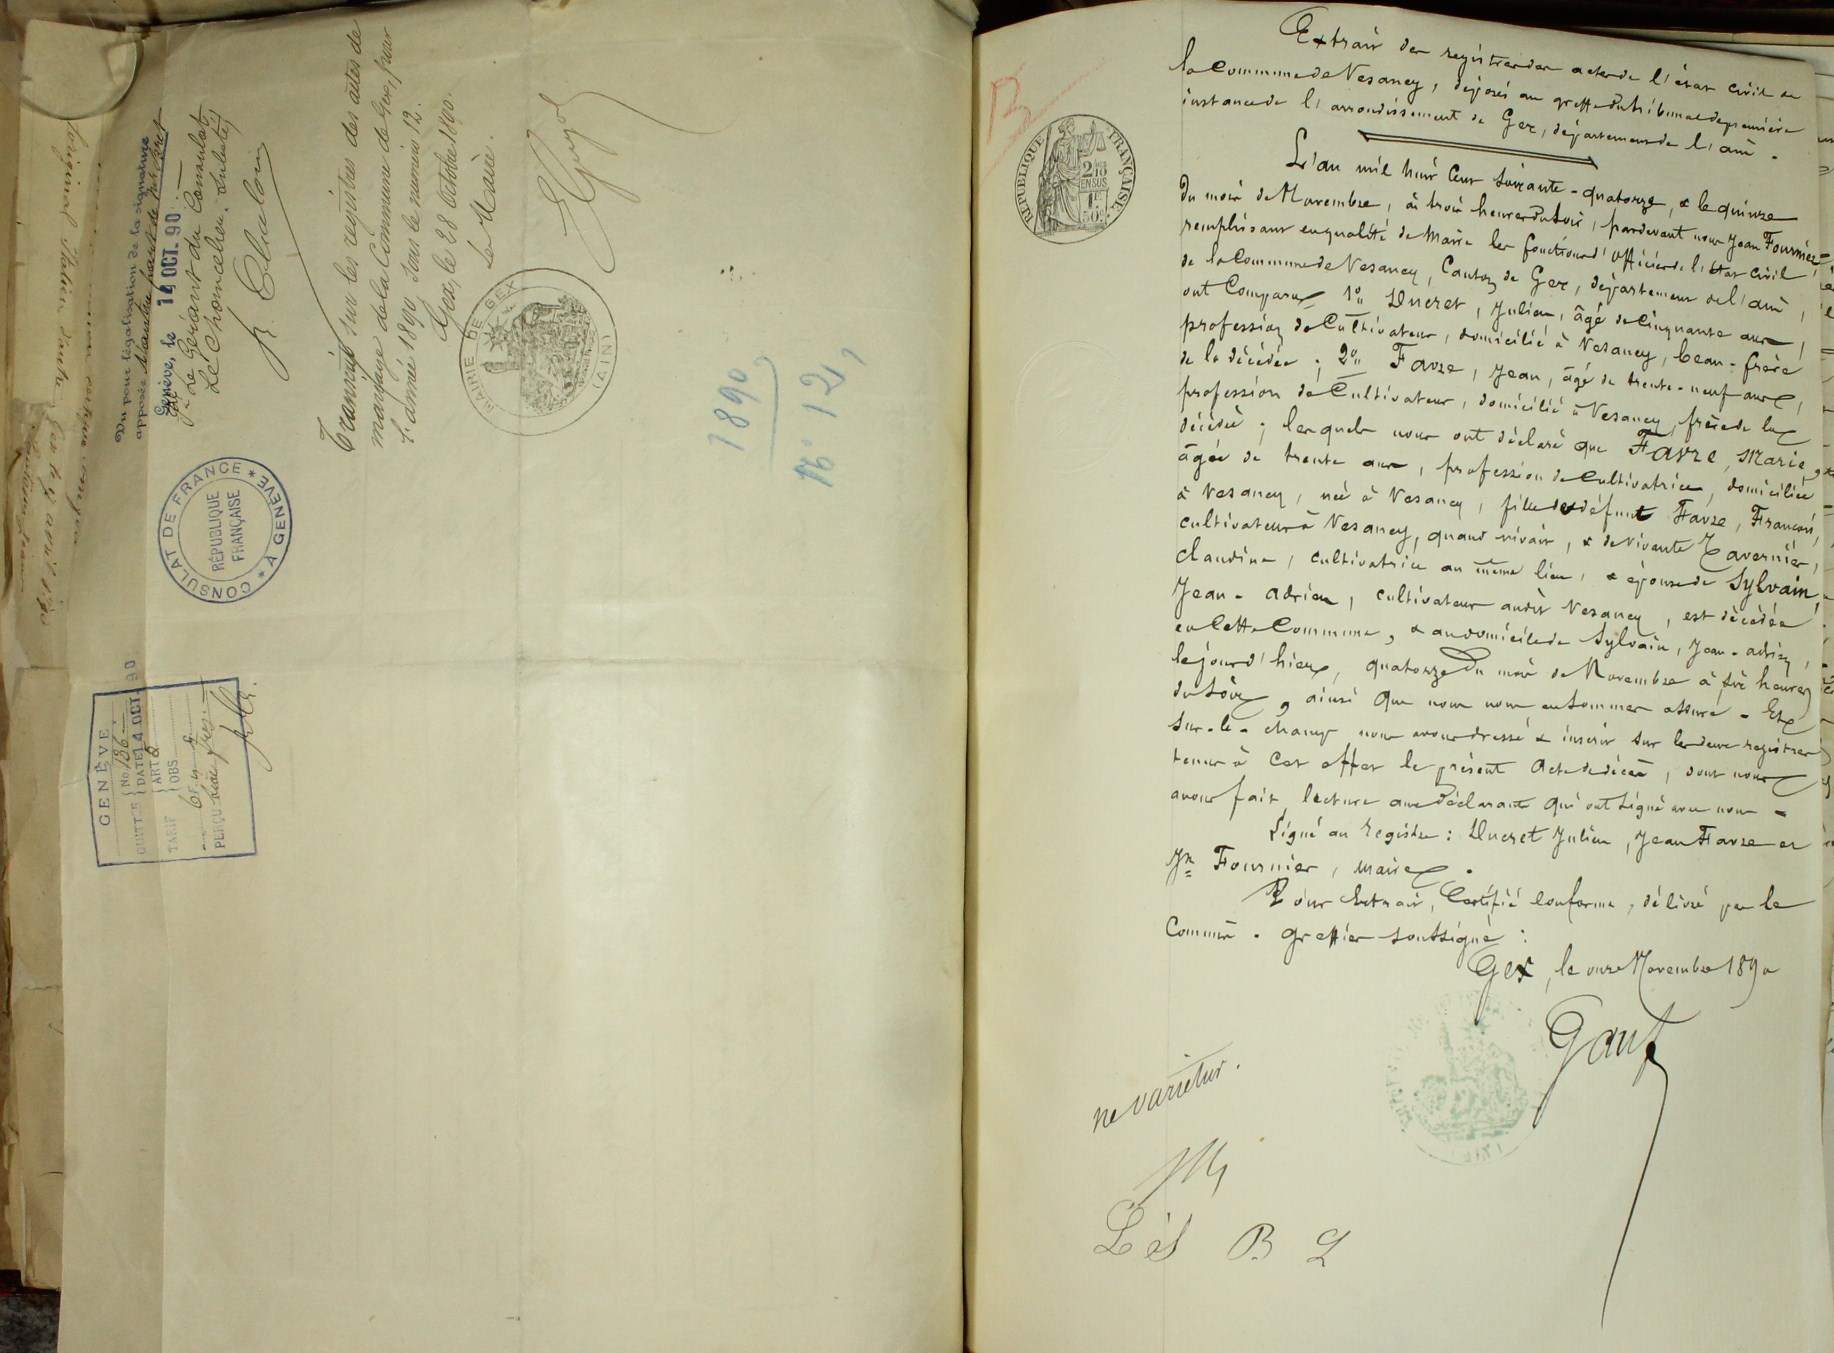 Vu pour légalisation de la signature
apposée
Genève, le 14 OCT. 90
Le Gérant du Consulat
Le Chancelier Substitué
Transcrit sur les registres des actes de
mariage de la Commune de Gex, pour
l'année 1890, sous le numéro 12.
Gex, le 28 Octobre 1890.
Le Maire.
MAIRIE DE GEX
(AIN)
1890
N° 12
CONSULAT DE FRANCE
A GENÈVE
RÉPUBLIQUE
FRANÇAISE
GENÈVE
No 186
DATE 14 OCT. 90
ART
TARIF OBS
PERÇU
B
RÉPUBLIQUE FRANÇAISE
2/10
EN SUS
1F
50c
Extrait des registres des actes de l'état civil de
la Commune de Vesancy, déposés au greffe du tribunal de première
instance de l'arrondissement de Gex, département de l'ain.
L'an mil huit Cent soixante-quatorze, & le quinze
du mois de Novembre, à trois heures du soir, pardevant nous Jean Fournier
remplissant en qualité de Maire les fonctions d'officier de l'état civil
de la Commune de Vesancy, Canton de Gex, département de l'ain,
ont Comparu 1° Ducret, Julien, âgé de Cinquante ans,
profession de Cultivateur, domicilié à Vesancy, beau-frère
de la décédée; 2° Favre, Jean, âgé de trente-neuf ans,
profession de Cultivateur, domicilié à Vesancy, frère de la
décédée; lesquels nous ont déclaré que Favre, Marie,
âgée de trente ans, profession de Cultivatrice, domiciliée
à Vesancy, née à Vesancy, fille de défunt Favre, François,
cultivateur à Vesancy, quand vivait, & de vivante Tavernier,
Claudine, cultivatrice au même lieu, & épouse de Sylvain,
Jean-Adrien, cultivateur audit Vesancy, est décédée
en Cette Commune, & au domicile de Sylvain, Jean-Adrien,
le jour d'hier, quatorze du mois de Novembre à six heures
du soir, ainsi que nous nous en sommes assuré - Et
sur-le-champ nous avons dressé & inscrit sur les deux registres
tenus à Cet effet le présent Acte de décès, dont nous
avons fait lecture aux déclarants qui ont signé avec nous -
Signé au registre: Ducret Julien, Jean Favre et
Jn Fournier, maire.
Pour Extrait, Certifié Conforme, délivré par le
Commis-greffier soussigné:
Gex, le onze Novembre 1890
ne varietur.
B L